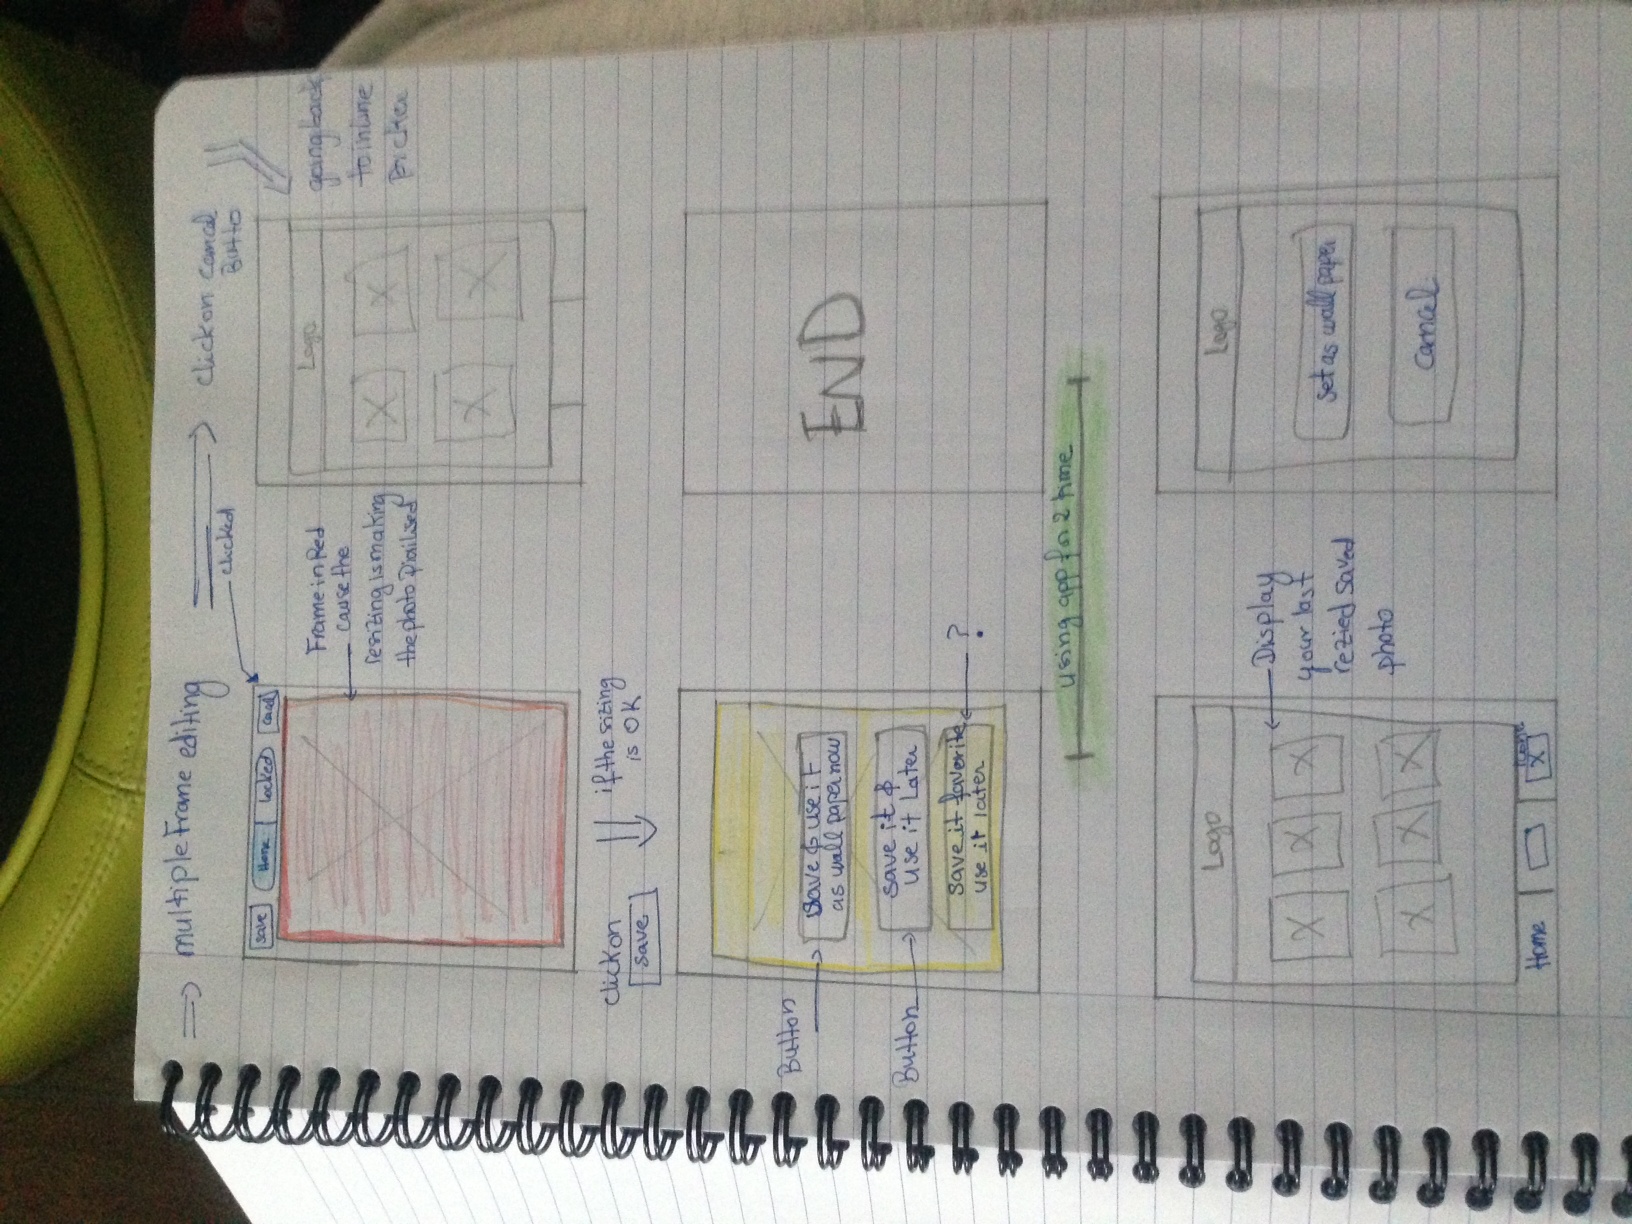 multiple Frame editing
click on camcal
Butto
clicked
save
Home
Locked
Logo
Frame in Red
cause the
resizing is making
the photo
going back
to inline
picker
click on
save
if the sizing
is OK
Button
save & use it
as wall paper now
Button
save it &
use it Later
save it favorite
use it later
?
END
using app for 2 time
Logo
Display
your last
rezied saved
photo
Home
icone
Logo
set as wall paper
camcal